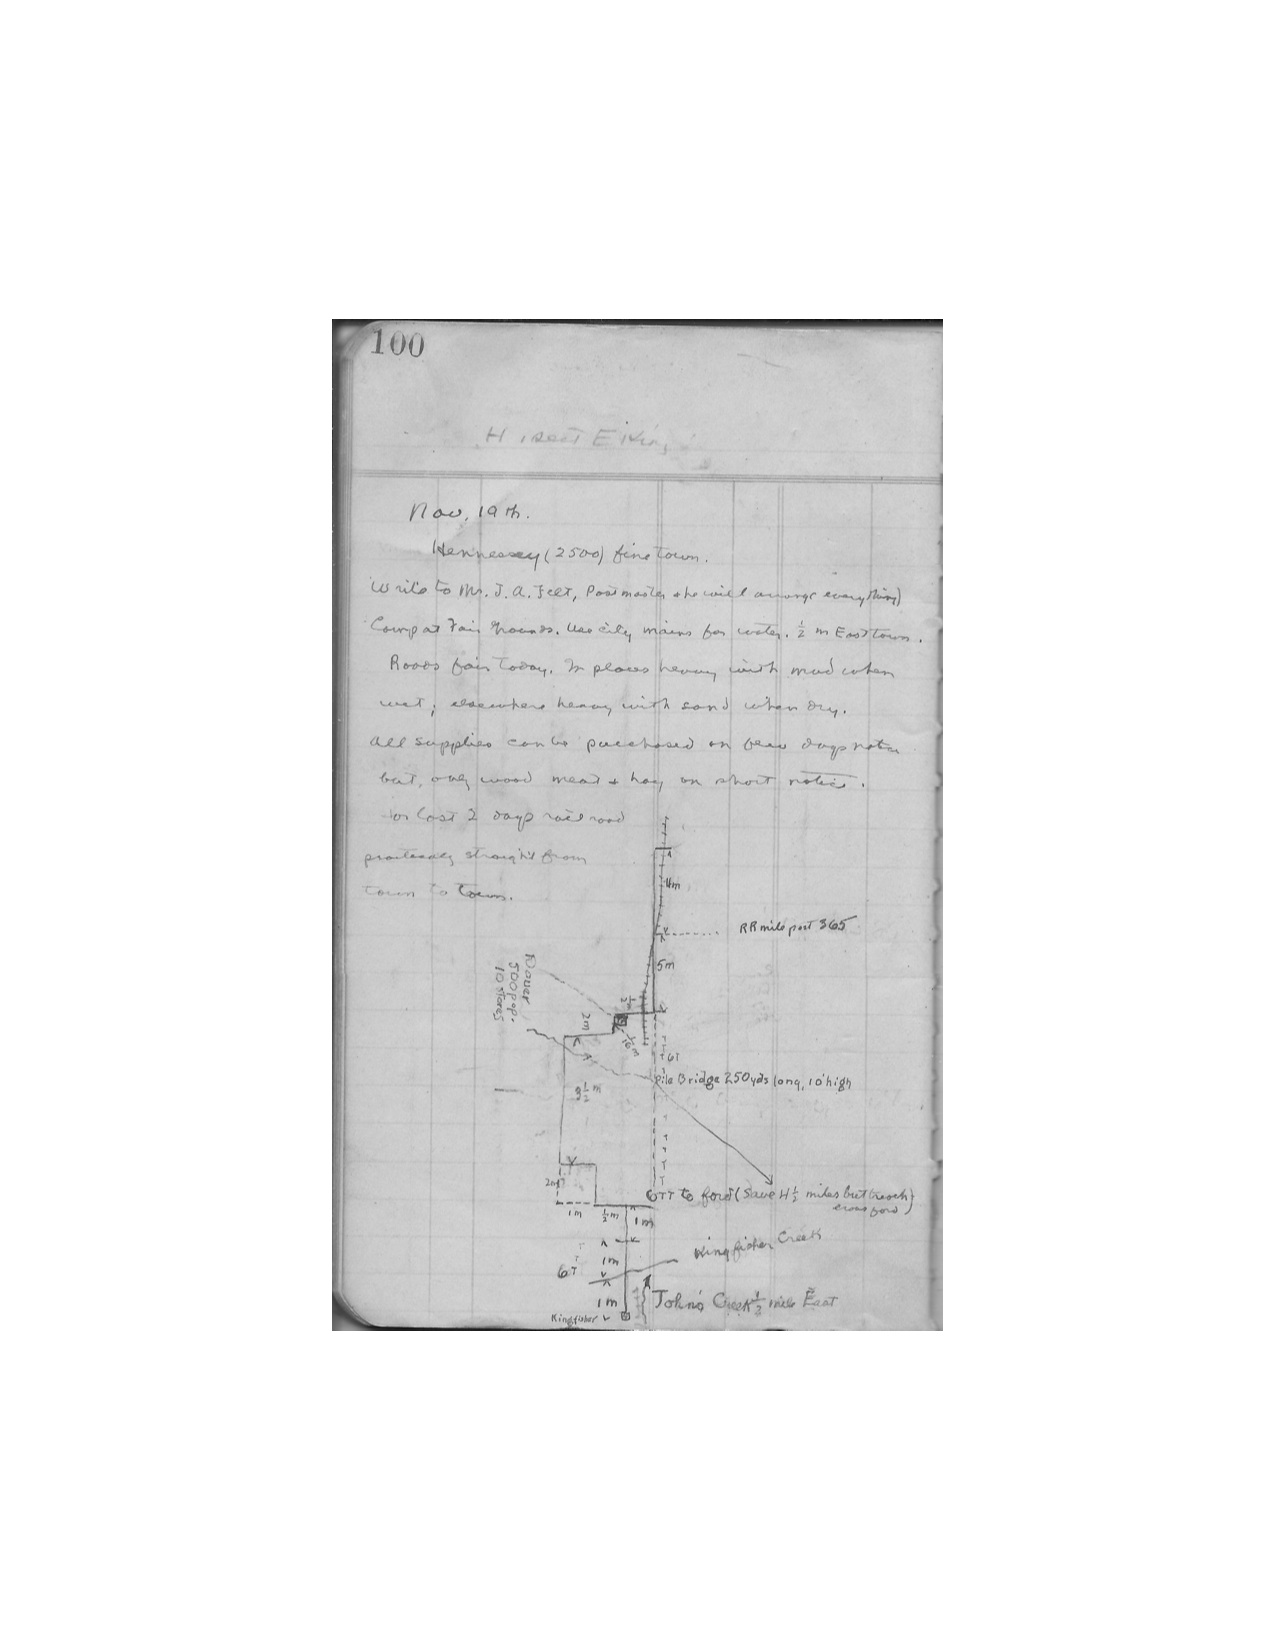 100
Nov. 19th.
Hennessey (2500) fine town.
Write to Mr. J. A. Felt, Postmaster & he will arrange everything)
Camp at Fair Grounds. Use city mains for water. ½ m East town.
Roads fair today. In places heavy with mud when
wet; elsewhere heavy with sand when dry.
All supplies can be purchased on few days notice
but, only wood meat & hay on short notice.
For last 2 days railroad
practically straight from
town to town.
4m
RR mile post 365
5m
Dover
500 pop.
10 stores
½
2m
1/10 m
6T
Pile Bridge 250yds long, 10' high
3½ m
2m
6TT to ford (Save 4½ miles but (reach)
cross ford)
1m
½ m
1m
Kingfisher Creek
1m
6T
1m
John's Creek ½ mile East
Kingfisher